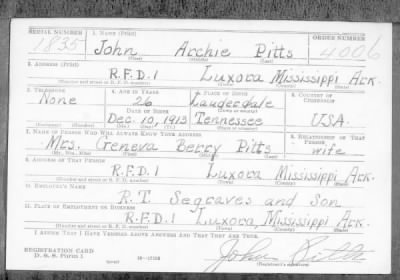 SERIAL NUMBER 1. NAME (Print) ORDER NUMBER
1835 John Archie Pitts 4006
(First) (Middle) (Last)
2. ADDRESS (Print)
R.F.D.1 Luxora Mississippi Ark.
(Number and street or R. F. D. number) (Town) (County) (State)
3. TELEPHONE 4. AGE IN YEARS 5. PLACE OF BIRTH 6. COUNTRY OF CITIZENSHIP
None 26 Lauderdale
DATE OF BIRTH (Town or county)
Dec. 10, 1913 Tennessee USA.
(Exchange) (Number) (Mo.) (Day) (Yr.) (State or country)
7. NAME OF PERSON WHO WILL ALWAYS KNOW YOUR ADDRESS 8. RELATIONSHIP OF THAT PERSON
Mrs. Geneva Berry Pitts wife
(Mr., Mrs., Miss) (First) (Middle) (Last)
9. ADDRESS OF THAT PERSON
R.F.D.1 Luxora Mississippi Ark.
(Number and street or R. F. D. number) (Town) (County) (State)
10. EMPLOYER'S NAME
R.T. Segraves and Son
11. PLACE OF EMPLOYMENT OR BUSINESS
R.F.D.1 Luxora, Mississippi Ark.
(Number and street or R. F. D. number) (Town) (County) (State)
I AFFIRM THAT I HAVE VERIFIED ABOVE ANSWERS AND THAT THEY ARE TRUE.
REGISTRATION CARD
D. S. S. Form 1 John Pitts
(over) (Registrant's signature)